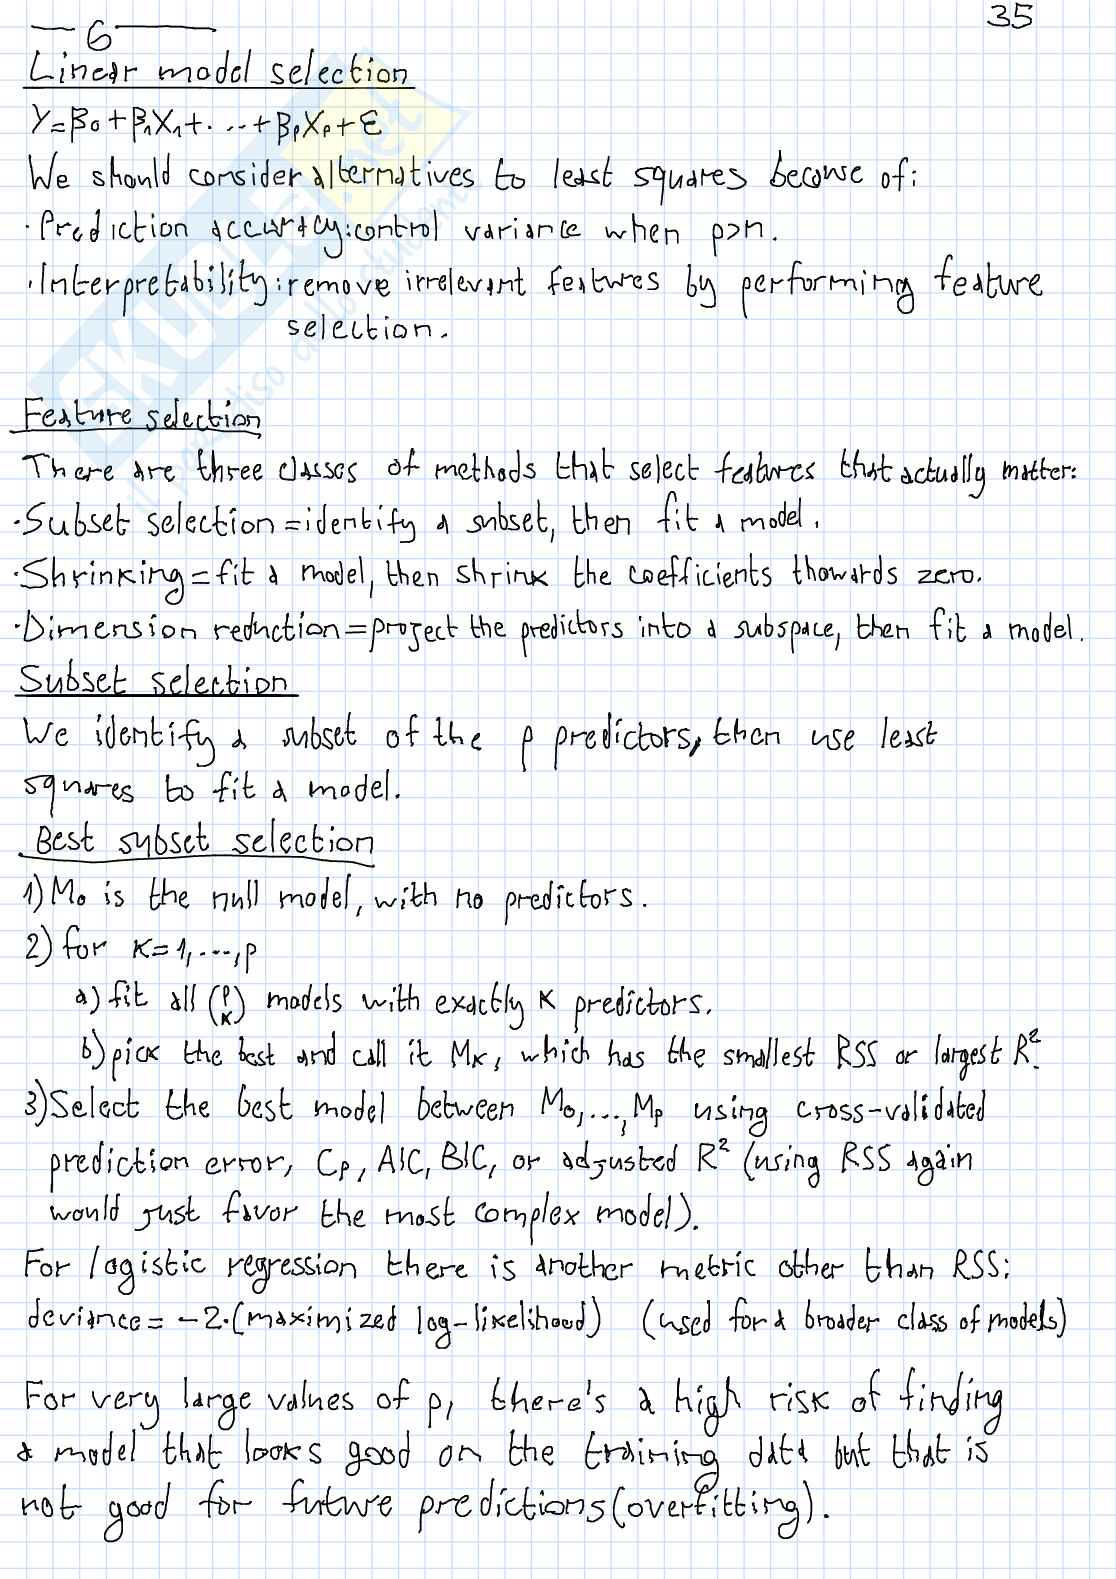 35
6
Linear model selection
Y=β₀+β₁X₁+...+βₚXₚ+ε
We should consider alternatives to least squares becouse of:
·Prediction accuracy:control variance when p>n.
·Interpretability:remove irrelevant features by performing feature
selection.
Feature selection
There are three classes of methods that select features that actually matter:
·Subset selection=identify a subset, then fit a model.
·Shrinking=fit a model, then shrink the coefficients thowards zero.
·Dimension reduction=project the predictors into a subspace, then fit a model.
Subset selection
We identify a subset of the p predictors, then use least
squares to fit a model.
Best subset selection
1)M₀ is the null model, with no predictors.
2)for K=1,...,p
a)fit all (p K) models with exactly K predictors.
b)pick the best and call it Mκ, which has the smallest RSS or largest R².
3)Select the best model between M₀,...,Mₚ using cross-validated
prediction error, Cₚ, AIC, BIC, or adjusted R² (using RSS again
would just favor the most complex model).
For logistic regression there is another metric other than RSS:
deviance=-2·(maximized log-likelihood) (used for a broader class of models)
For very large values of p, there's a high risk of finding
a model that looks good on the training data but that is
not good for future predictions(overfitting).
SKUOLA.net